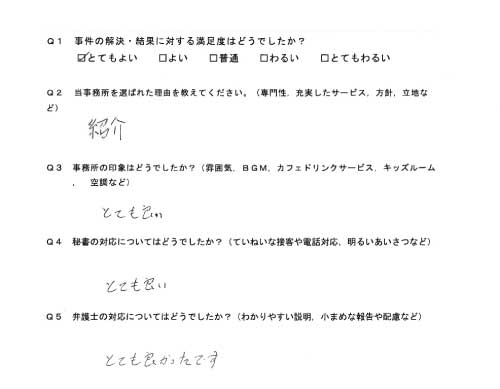 Ｑ１　事件の解決・結果に対する満足度はどうでしたか？
☑とてもよい　□よい　□普通　□わるい　□とてもわるい
Ｑ２　当事務所を選ばれた理由を教えてください。（専門性，充実したサービス，方針，立地な
ど）
紹介
Ｑ３　事務所の印象はどうでしたか？（雰囲気，ＢＧＭ，カフェドリンクサービス，キッズルーム
，　空調など）
とても良い
Ｑ４　秘書の対応についてはどうでしたか？（ていねいな接客や電話対応，明るいあいさつなど）
とても良い
Ｑ５　弁護士の対応についてはどうでしたか？（わかりやすい説明，小まめな報告や配慮など）
とても良かったです